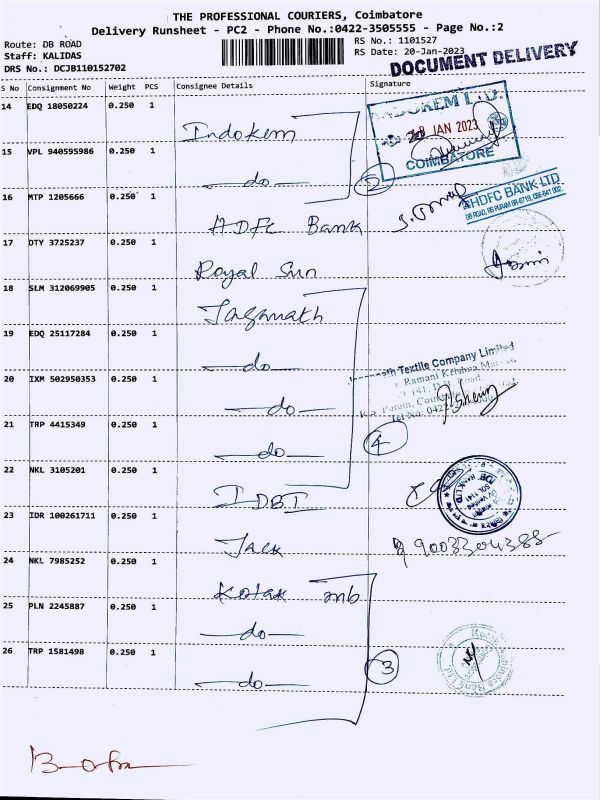 THE PROFESSIONAL COURIERS, Coimbatore
Delivery Runsheet - PC2 - Phone No.:0422-3505555 - Page No.:2
Route: DB ROAD
RS No.: 1101527
Staff: KALIDAS
RS Date: 20-Jan-2023
DRS No.: DCJB110152702
DOCUMENT DELIVERY
S No Consignment No Weight PCS Consignee Details Signature
14 EDQ 18050224 0.250 1 Indokem
INDOKEM LTD.
JAN 2023
COIMBATORE
15 VPL 940595986 0.250 1 —do—
2
16 MTP 1205666 0.250 1 HDFC Bank
HDFC BANK LTD
17 DTY 3725237 0.250 1 Royal Sun
18 SLM 312069905 0.250 1 Jagannath
19 EDQ 25117284 0.250 1 —do—
Textile Company Limited
Ramani Krishna
20 IXM 502950353 0.250 1 —do—
21 TRP 4415349 0.250 1 —do—
4
22 NKL 3105201 0.250 1 IDBI
23 IDR 100261711 0.250 1 Jack
9003304388
24 NKL 7985252 0.250 1 Kotak mb
25 PLN 2245887 0.250 1 —do—
26 TRP 1581498 0.250 1 —do—
3